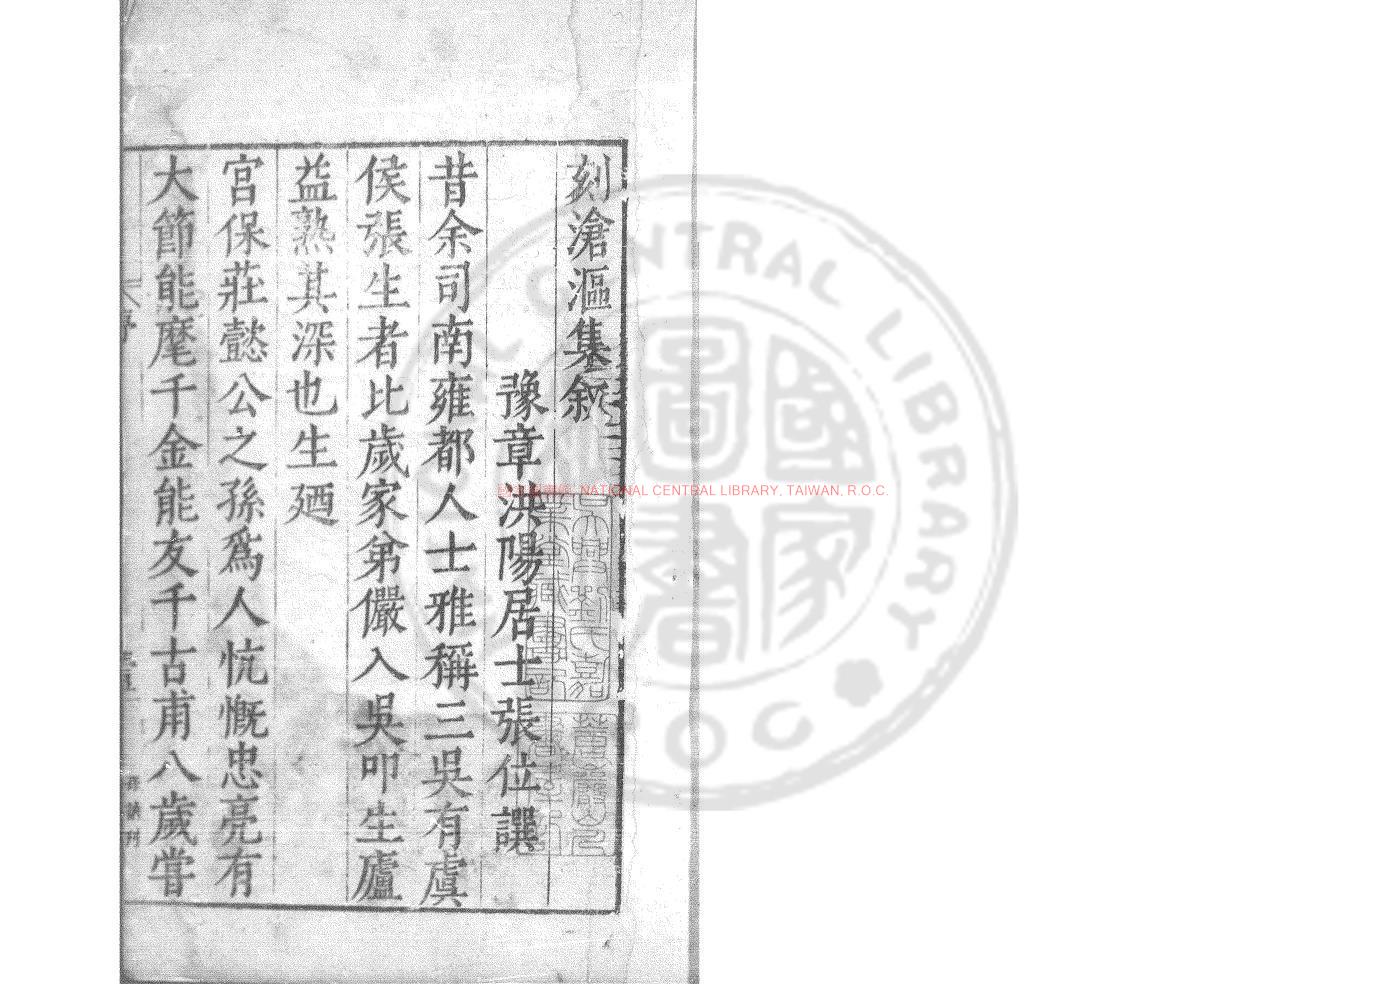 刻滄漚集叙
豫章洪陽居士張位譔
昔余司南雍都人士雅稱三吳有虞
侯張生者比歲家弟儼入吳叩生廬
益熟其深也生廼
宮保莊懿公之孫爲人忼慨忠亮有
大節能麾千金能友千古甫八歲嘗
NATIONAL CENTRAL LIBRARY, TAIWAN, R.O.C.
國家圖書館
CENTRAL LIBRARY